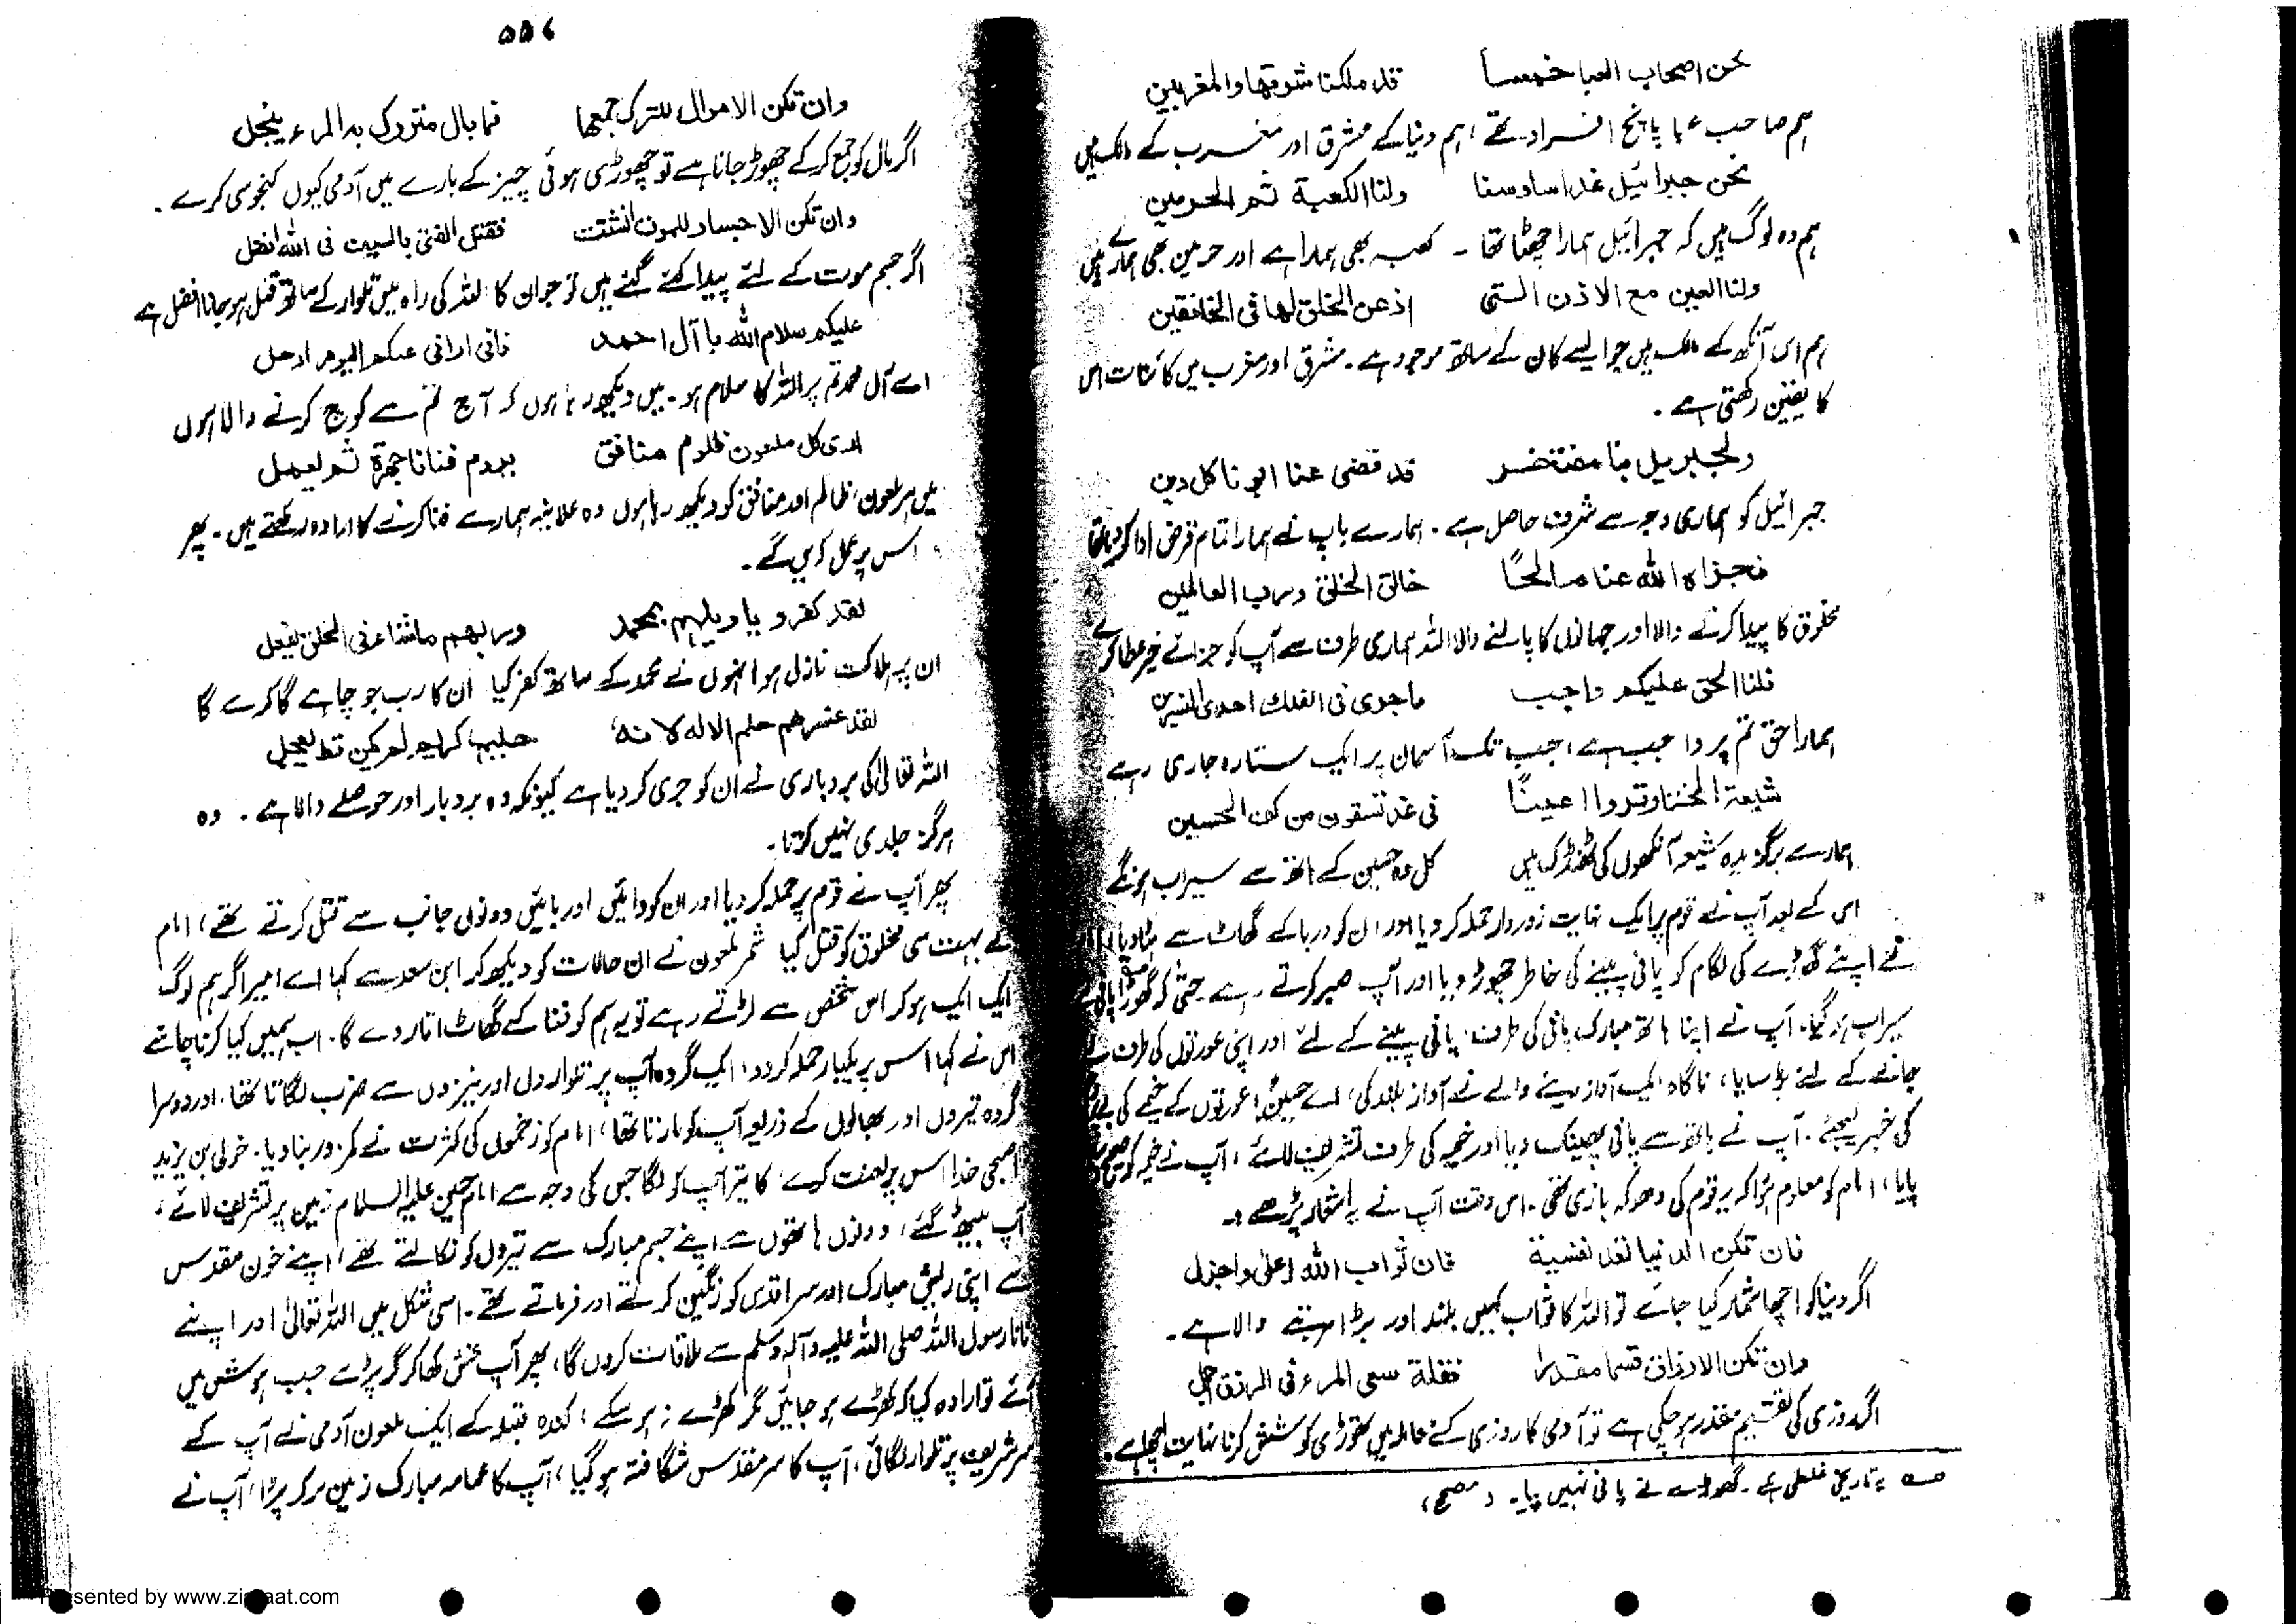 نحن اصحاب العبا خمستنا قد ملکنا شرقها والمغربین
ہم صاحب عبا پانچ افراد تھے، ہم دنیا کے مشرق اور مغرب کے مالک ہیں
نحن جبرائیل غدا سادسنا ولنا الکعبة ثم الحرمین
ہم وہ لوگ ہیں کہ جبرائیل ہمارا چھٹا تھا ۔ کعبہ بھی ہمارا ہے اور حرمین بھی ہمارے ہیں
ولنا العین مع الاذن التی اذعن الخلق لها فی الخافقین
ہم اس آنکھ کے مالک ہیں جو ایسے کان کے ساتھ موجود ہے ۔ مشرق اور مغرب میں کائنات اس
کا یقین رکھتی ہے ۔
ولجبریل بنا مفتخر قد قضی عنا ابونا کل دین
جبرائیل کو ہماری وجہ سے شرف حاصل ہے ۔ ہمارے باپ نے ہمارا تمام قرض ادا کر دیا تھا
فجزاه الله عنا صالحًا خالق الخلق ورب العالمین
مخلوق کا پیدا کرنے والا اور جہانوں کا پالنے والا اللہ ہماری طرف سے آپ کو جزائے خیر عطا کرے
فلنا الحق علیکم واجب ماجری فی الفلك احدی النیرین
ہمارا حق تم پر واجب ہے، جب تک آسمان پر ایک ستارہ جاری رہے
شیعة المختار قروا اعینًا فی غد تسقون من کف الحسین
ہمارے برگزیدہ شیعہ آنکھوں کی ٹھنڈک ہیں کل وہ حسین کے ہاتھ سے سیراب ہونگے
اس کے بعد آپ نے قوم پر ایک نہایت زوردار حملہ کر دیا اور ان کو دریا کے گھاٹ سے ہٹا دیا،
نے اپنے گھوڑے کی لگام کو پانی پینے کی خاطر چھوڑ دیا اور آپ صبر کرتے رہے ۔ حتیٰ کہ گھوڑا پانی سے
سیراب ہو گیا، آپ نے اپنا ہاتھ مبارک پانی کی طرف، پانی پینے کے لئے اور اپنی عورتوں کی طرف لے
جانے کے لئے بڑھایا، ناگاہ ایک آواز دینے والے نے آواز بلند کی، اے حسینؑ! عورتوں کے خیمے کی
کی خبر لیجئے ۔ آپ نے ہاتھ سے پانی پھینک دیا اور خیمہ کی طرف تشریف لائے، آپ نے خیمہ کو صحیح
پایا، امام کو معلوم ہوا کہ یہ قوم کی دھوکہ بازی تھی ۔ اس وقت آپ نے یہ اشعار پڑھے :۔
فان تکن الدنیا تعد نفیسة فان ثواب الله اعلی واجزل
اگر دنیا کو اچھا شمار کیا جائے تو اللہ کا ثواب کہیں بلند اور بڑا مرتبے والا ہے ۔
وان تکن الارزاق قسما مقدرا فقلة سعی المرء فی الرزق اجمل
اگر روزی کی تقسیم مقدر ہو چکی ہے تو آدمی کا روزی کے معاملہ میں تھوڑی کوشش کرنا نہایت اچھا ہے ۔
یہ تاریخی غلطی ہے ۔ گھوڑے نے پانی نہیں پیا ۔ ( مصحح )
۵۵۷
وان تکن الاموال للترك جمعها فما بال متروك به المرء یبخل
اگر مال کو جمع کر کے چھوڑ جانا ہے تو چھوڑی ہوئی چیز کے بارے میں آدمی کیوں کنجوسی کرے ۔
وان تکن الاجساد للموت انشئت فقتل الفتی بالسیف فی الله افضل
اگر جسم موت کے لئے پیدا کئے گئے ہیں تو جوان کا اللہ کی راہ میں تلوار کے ساتھ قتل ہو جانا افضل ہے
علیکم سلام الله یا آل احمد فانی ارانی عنکم الیوم ارحل
اے آل محمد تم پر اللہ کا سلام ہو ۔ میں دیکھ رہا ہوں کہ آج تم سے کوچ کرنے والا ہوں
اری کل ملعون ظلوم منافق یروم فنانا جهرة ثم یعمل
میں ہر ملعون، ظالم اور منافق کو دیکھ رہا ہوں وہ علانیہ ہمارے فنا کرنے کا ارادہ رکھتے ہیں ۔ پھر
اس پر عمل کریں گے ۔
لقد کفروا یا ویلهم بمحمد وربهم ماشاء فی الخلق یفعل
ان پہ ہلاکت نازل ہو انہوں نے محمد کے ساتھ کفر کیا ان کا رب جو چاہے گا کرے گا
لقد غرهم حلم الاله لانه حلیم کریم لم یکن قط یعجل
اللہ تعالیٰ کی بردباری نے ان کو جری کر دیا ہے کیونکہ وہ بردبار اور حوصلے والا ہے ۔ وہ
ہرگز جلدی نہیں کرتا ۔
پھر آپ نے قوم پر حملہ کر دیا اور ان کو دائیں اور بائیں دونوں جانب سے قتل کرتے تھے، امام
نے بہت سی مخلوق کو قتل کیا شمر ملعون نے ان حالات کو دیکھ کر ابن سعد سے کہا اے امیر اگر ہم لوگ
ایک ایک ہو کر اس شخص سے لڑتے رہے تو یہ ہم کو فنا کے گھاٹ اتار دے گا ۔ اب ہمیں کیا کرنا چاہیے
اس نے کہا اس پر یکبار حملہ کر دو، ایک گروہ آپ پر تلواروں اور نیزوں سے ضرب لگاتا تھا، اور دوسرا
گروہ تیروں اور بھالوں کے ذریعہ آپ کو مارتا تھا، امام کو زخموں کی کثرت نے کمزور بنا دیا ۔ خولی بن یزید
اصبحی خدا اس پر لعنت کرے، کا تیر آپ کو لگا جس کی وجہ سے امام حسین علیہ السلام زمین پر تشریف لائے،
آپ بیٹھ گئے، دونوں ہاتھوں سے اپنے جسم مبارک سے تیروں کو نکالتے تھے، اپنے خون مقدس
سے اپنی ریش مبارک اور سر اقدس کو رنگین کرتے اور فرماتے تھے ۔ اسی شکل میں اللہ تعالیٰ اور اپنے
نانا رسول اللہ صلی اللہ علیہ وآلہ وسلم سے ملاقات کروں گا، پھر آپ غش کھا کر گر پڑے جب ہوش میں
آئے تو ارادہ کیا کہ کھڑے ہو جائیں مگر کھڑے نہ ہو سکے، کندہ قبیلہ کے ایک ملعون آدمی نے آپ کے
سر شریف پر تلوار لگائی، آپ کا سر مقدس شگافتہ ہو گیا، آپ کا عمامہ مبارک زمین پر گر پڑا، آپ نے